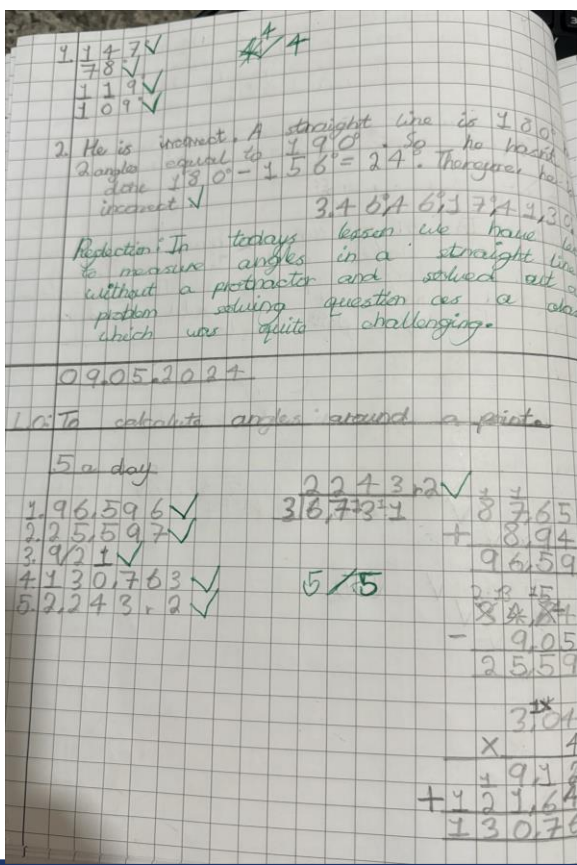 1. 147 ✓
78 ✓
119 ✓
109 ✓
4/4
2. He is incorrect. A straight line is 180°
2 angles equal to 190°. So he hasn't
done 180° - 156° = 24°. Therefore, he
incorrect ✓
Reflection: In todays lesson we have
to measure angles in a straight line
without a protractor and solved out a
problem solving question as a
which was quite challenging.
09.05.2024
L.O: To calculate angles around a point.
5 a day
1. 96,596 ✓
2. 25,597 ✓
3. 9/21 ✓
4. 130,763 ✓
5. 2,243 r 2 ✓
2243 r2 ✓
3 6,731
5/5
87,65
+ 8,94
96,59
- 9,05
25,59
3,04
× 4
19,18
+ 121,64
130,76